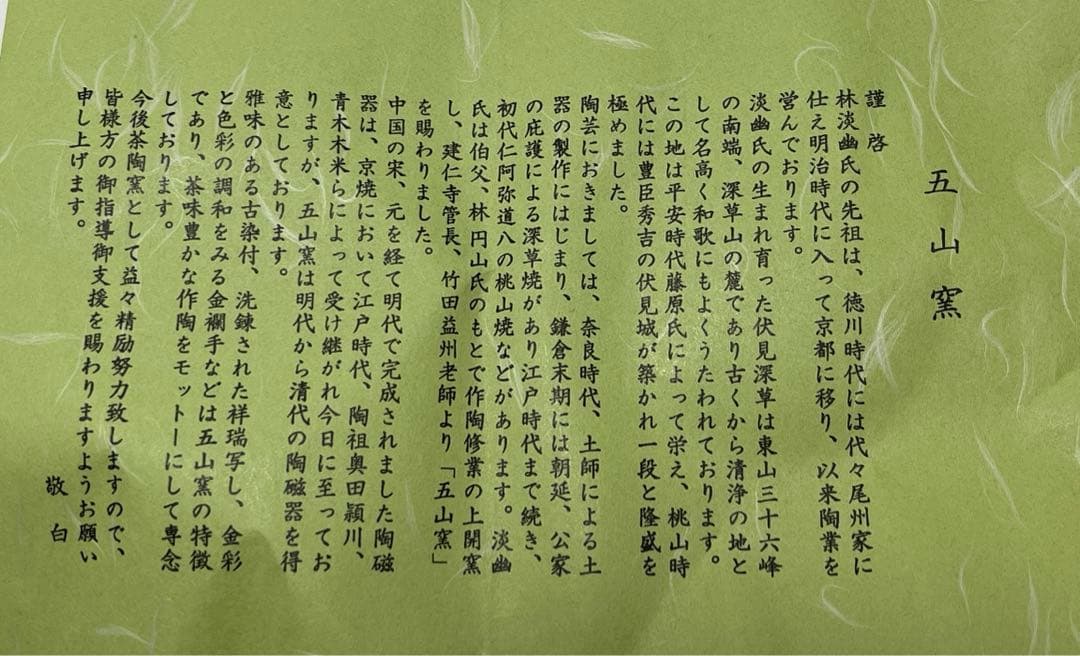 五山窯
謹啓
林淡幽氏の先祖は、徳川時代には代々尾州家に
仕え明治時代に入って京都に移り、以来陶業を
営んでおります。
淡幽氏の生まれ育った伏見深草は東山三十六峰
の南端、深草山の麓であり古くから清浄の地と
して名高く和歌にもよくうたわれております。
この地は平安時代藤原氏によって栄え、桃山時
代には豊臣秀吉の伏見城が築かれ一段と隆盛を
極めました。
陶芸におきましては、奈良時代、土師による土
器の製作にはじまり、鎌倉末期には朝延、公家
の庇護による深草焼があり江戸時代まで続き、
初代仁阿弥道八の桃山焼などがあります。淡幽
氏は伯父、林円山氏のもとで作陶修業の上開窯
し、建仁寺管長、竹田益州老師より「五山窯」
を賜わりました。
中国の宋、元を経て明代で完成されました陶磁
器は、京焼において江戸時代、陶祖奥田頴川、
青木木米らによって受け継がれ今日に至ってお
りますが、五山窯は明代から清代の陶磁器を得
意としております。
雅味のある古染付、洗錬された祥瑞写し、金彩
と色彩の調和をみる金襴手などは五山窯の特徴
であり、茶味豊かな作陶をモットーにして専念
しております。
今後茶陶窯として益々精励努力致しますので、
皆様方の御指導御支援を賜わりますようお願い
申し上げます。
敬白